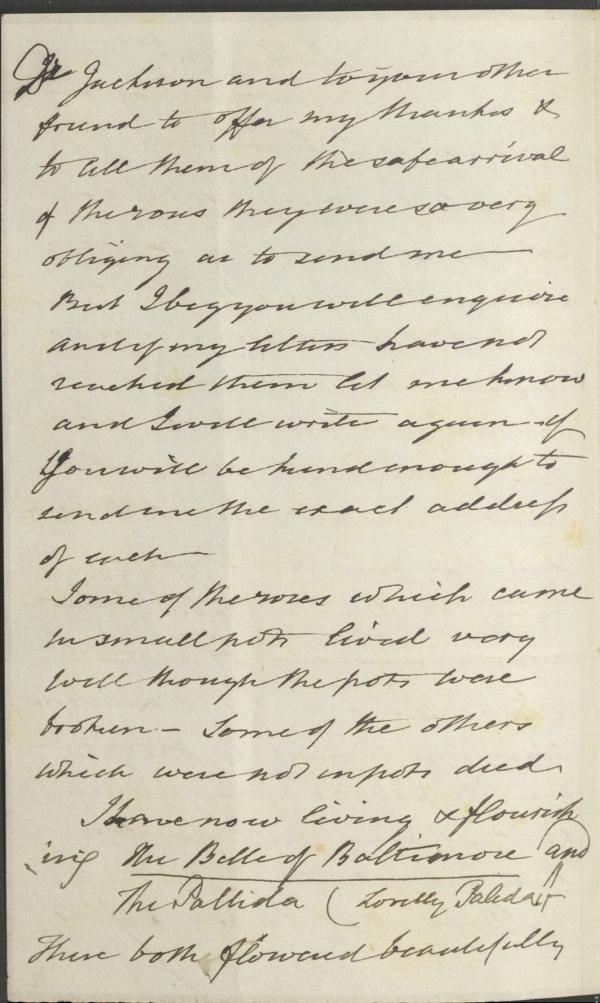 Dr Jackson and to your other
friend to offer my thanks &
to tell them of the safe arrival
of the roses they were so very
obliging as to send me
But I beg you will enquire
and if my letters have not
reached them let me know
and I will write again if
you will be kind enough to
send me the exact address
of each
Some of the roses which came
in small pots lived very
well though the pots were
broken - Some of the others
which were not in pots died
I have now living & flourish
ing The Belle of Baltimore and
The Pallida (
These both flowered beautifully